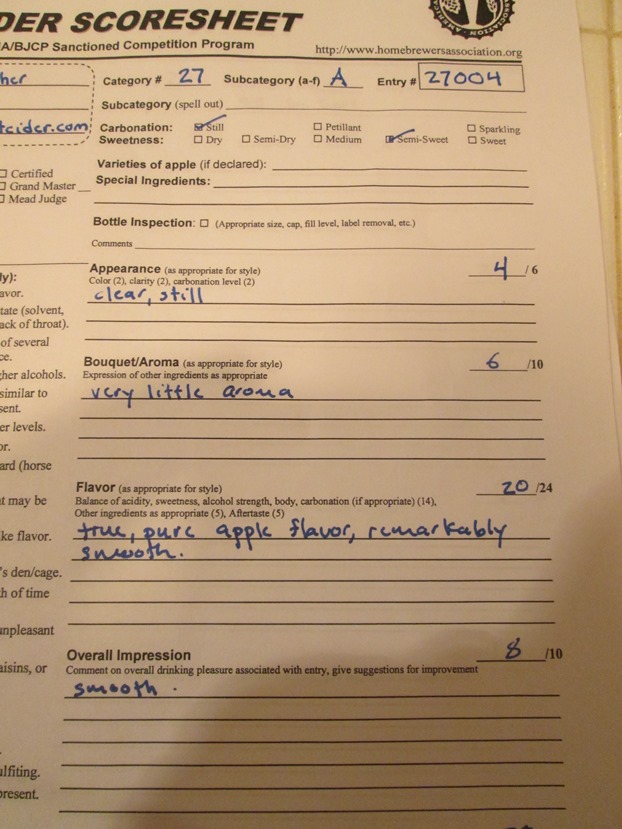 DER SCORESHEET
A/BJCP Sanctioned Competition Program
http://www.homebrewersassociation.org
her
Category # 27 Subcategory (a-f) A Entry # 27004
Subcategory (spell out)
tcider.com;
Carbonation: Still Petillant Sparkling
Sweetness: Dry Semi-Dry Medium Semi-Sweet Sweet
Varieties of apple (if declared):
Special Ingredients:
Certified
Grand Master
Mead Judge
Bottle Inspection: (Appropriate size, cap, fill level, label removal, etc.)
Comments
Appearance (as appropriate for style) 4 / 6
Color (2), clarity (2), carbonation level (2)
clear, still
ly):
avor.
tate (solvent,
ack of throat).
of several
ce.
Bouquet/Aroma (as appropriate for style) 6 /10
Expression of other ingredients as appropriate
very little aroma
her alcohols.
similar to
sent.
er levels.
or.
ard (horse
Flavor (as appropriate for style) 20 /24
Balance of acidity, sweetness, alcohol strength, body, carbonation (if appropriate) (14),
Other ingredients as appropriate (5), Aftertaste (5)
true, pure apple flavor, remarkably
smooth.
t may be
ke flavor.
's den/cage.
h of time
unpleasant
Overall Impression 8 /10
Comment on overall drinking pleasure associated with entry, give suggestions for improvement
smooth.
aisins, or
lfiting.
present.